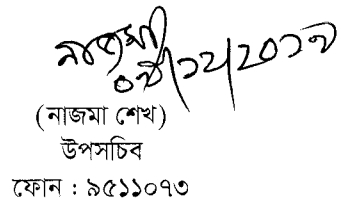 নাজমা
০৪/১২/২০১৭
(নাজমা শেখ)
উপসচিব
ফোন : ৯৫১১০৭৩